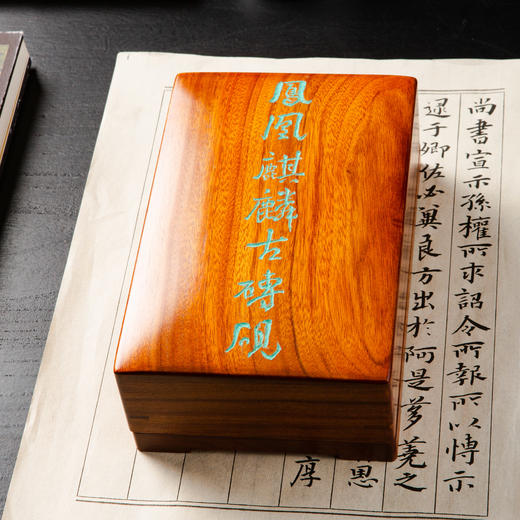 尚書宣示孫權所求詔令所報所以博示
逮于卿佐必冀良方出於阿是芻蕘之
思
厚
鳳凰麒麟古磚硯